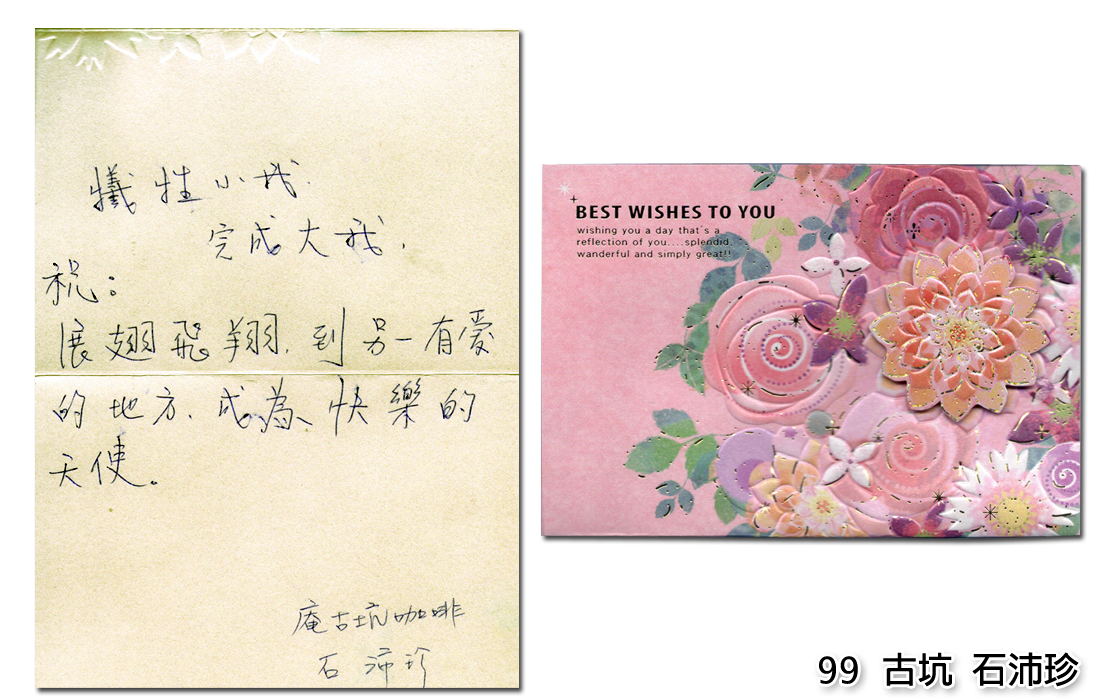 犧牲小我.
完成大我.
祝：
展翅飛翔.到另一有愛
的地方.成為快樂的
天使。
庵古坑咖啡
石沛珍
BEST WISHES TO YOU
wishing you a day that's a
reflection of you....splendid,
wanderful and simply great!!
99 古坑 石沛珍